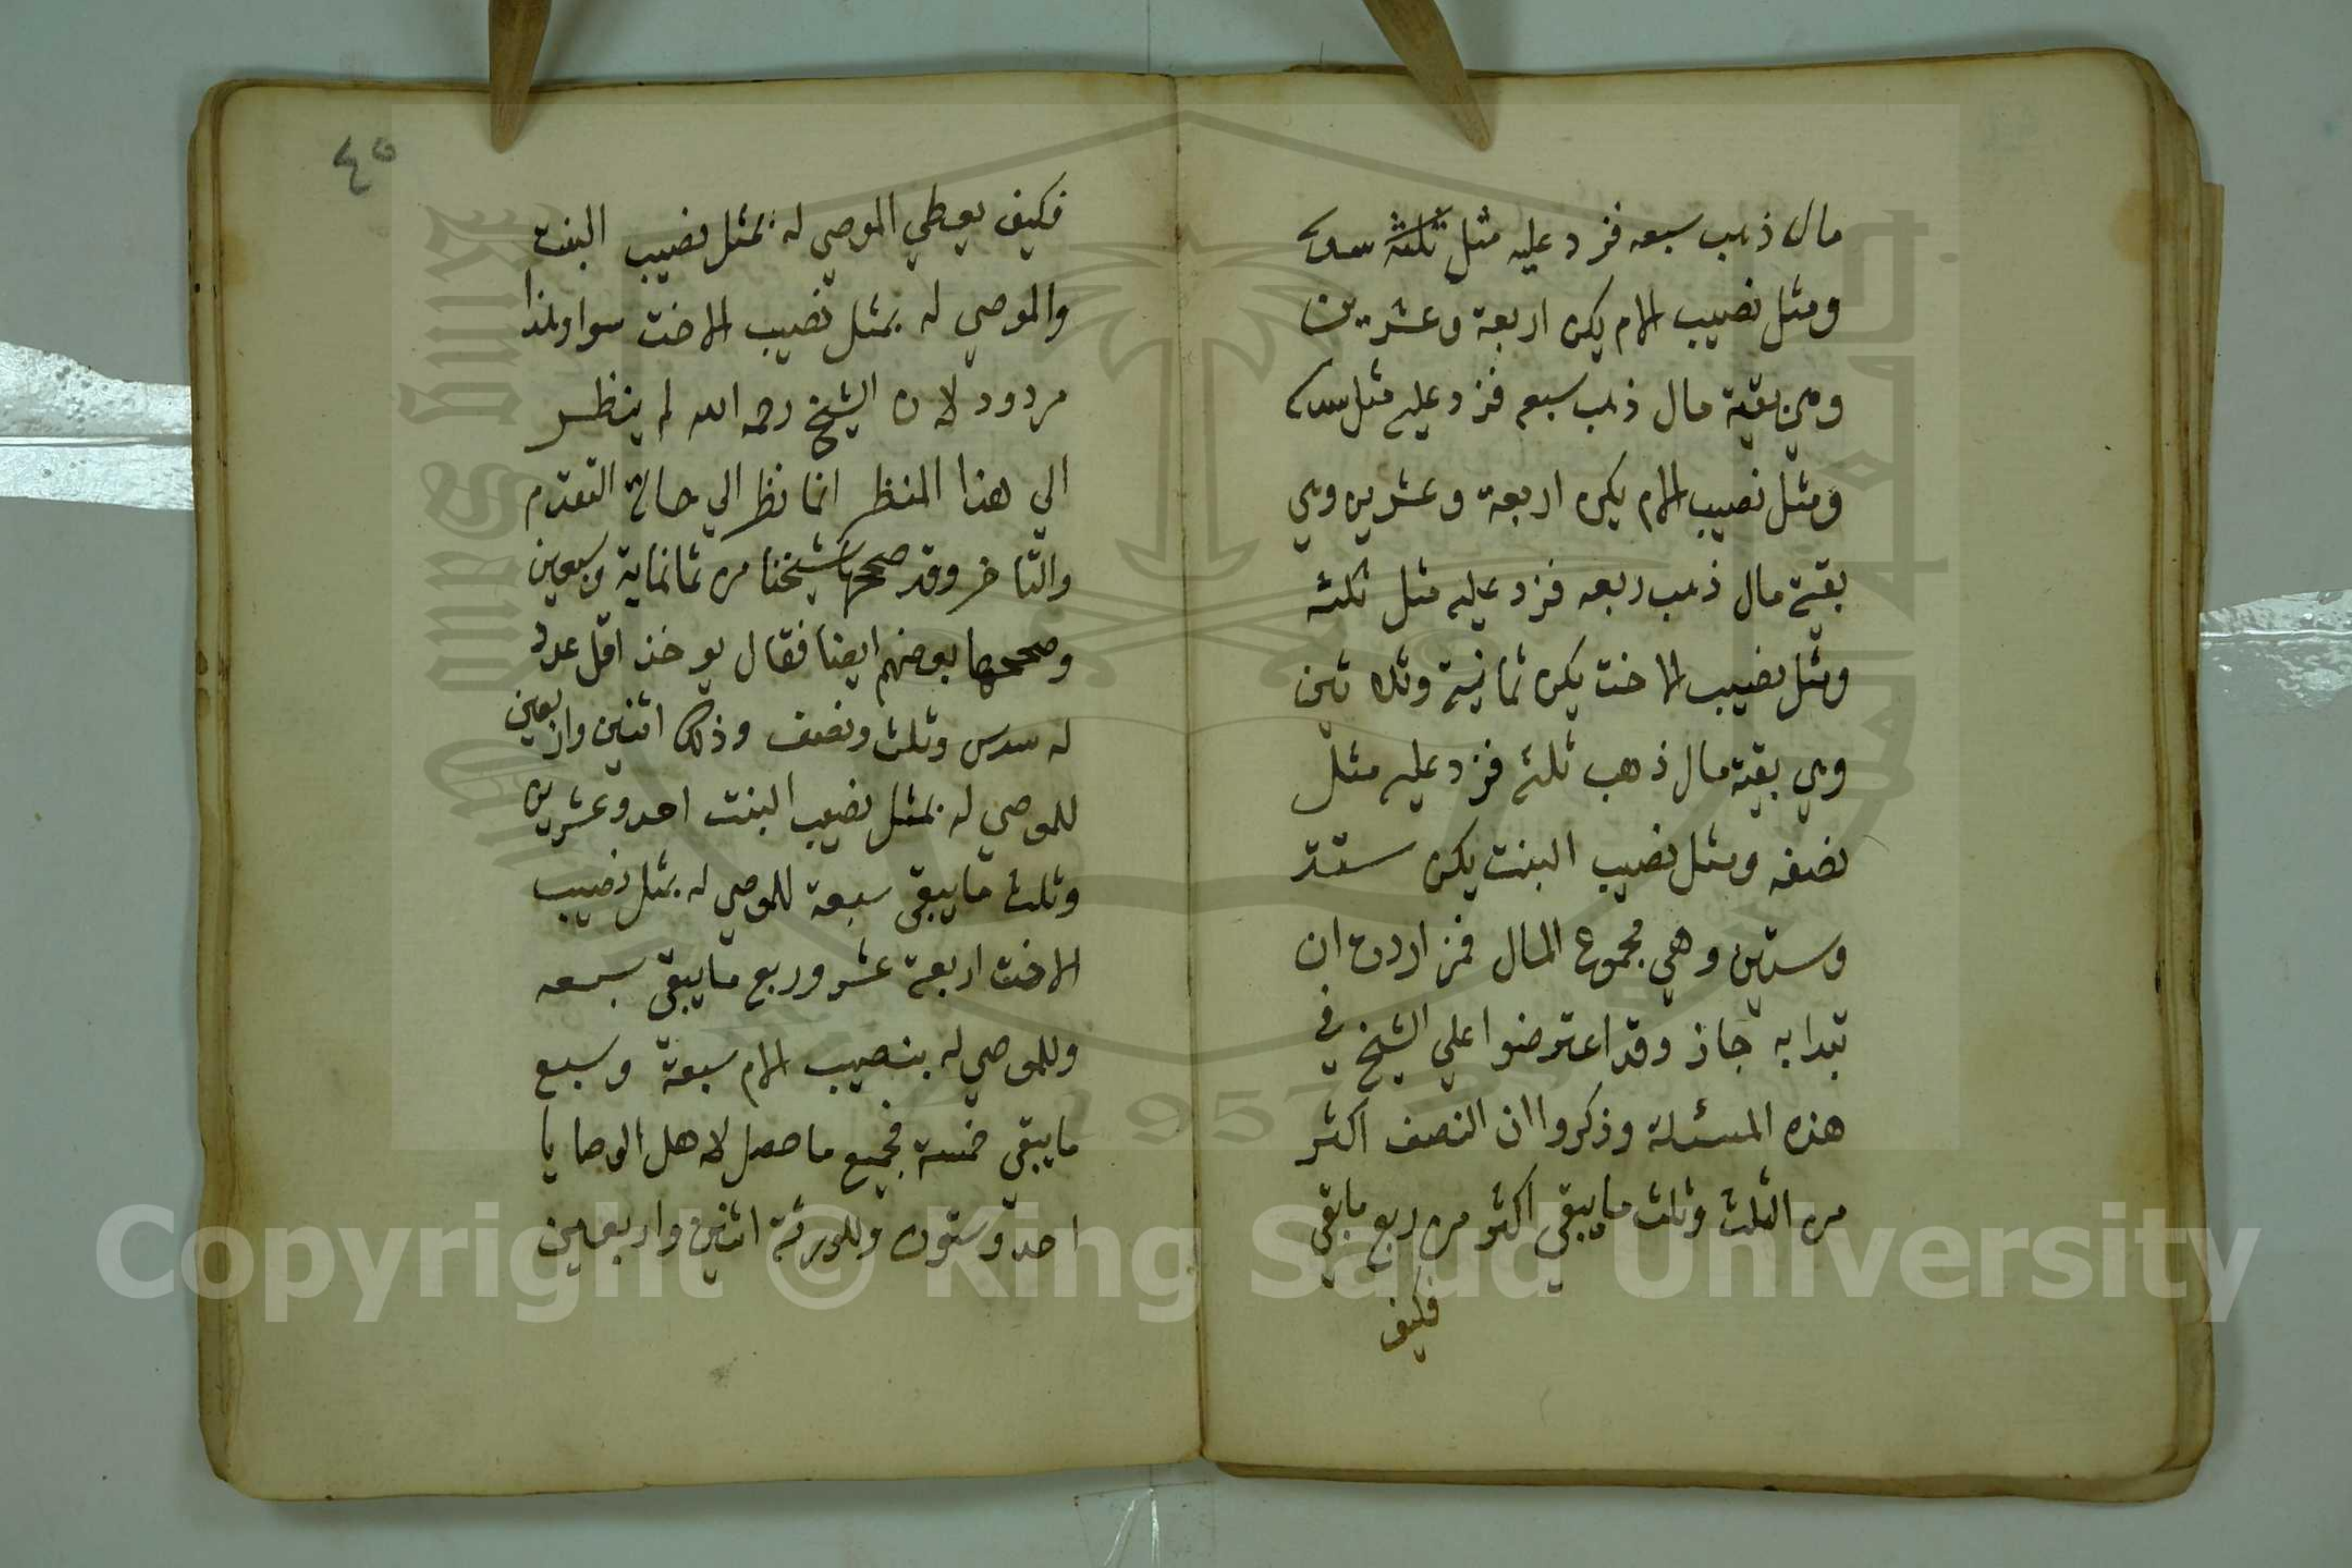 مال ذهب سبعه فزد عليه مثل ثلثه سدسه
ومثل نصيب الام يكن اربعة وعشرين
وهي بقية مال ذهب سبعه فزد عليه مثل سدسه
ومثل نصيب الام يكن اربعة وعشرين وهي
بقية مال ذهب ربعه فزد عليه مثل ثلثه
ومثل نصيب الاخت يكن ثمانية وثلاثين
وهي بقية مال ذهب ثلثه فزد عليه مثل
نصفه ومثل نصيب البنت يكن ستة
وستين وهي مجموع المال فمن اردت ان
تبدا به جاز وقد اعترضوا علي الشيخ في
هذه المسئلة وذكروا ان النصف اكثر
من الثلث وثلث ما يبقي اكثر من ربع ما بقي
فكيف
٤٥
فكيف يعطي الموصي له بمثل نصيب البنت
والموصي له بمثل نصيب الاخت سوا وهذا
مردود لان الشيخ رحمه الله لم ينظر
الي هذا المنظر انما نظر الي حالة التقدم
والتاخر وقد صححها شيخنا من ثمانماية وسبعين
وصححها بعضهم ايضا فقال يوخذ اقل عدد
له سدس وثلث ونصف وذلك اثنين واربعين
للموصي له بمثل نصيب البنت احد وعشرين
وثلث ما يبقي سبعة للموصي له بمثل نصيب
الاخت اربعة عشر وربع ما يبقي سبعه
وللموصي له بنصيب الام سبعة وسبع
ما يبقي خمسة فجميع ما حصل لاهل الوصايا
احد وستون وللورثة اثنين واربعين
Copyright © King Saud University
1957